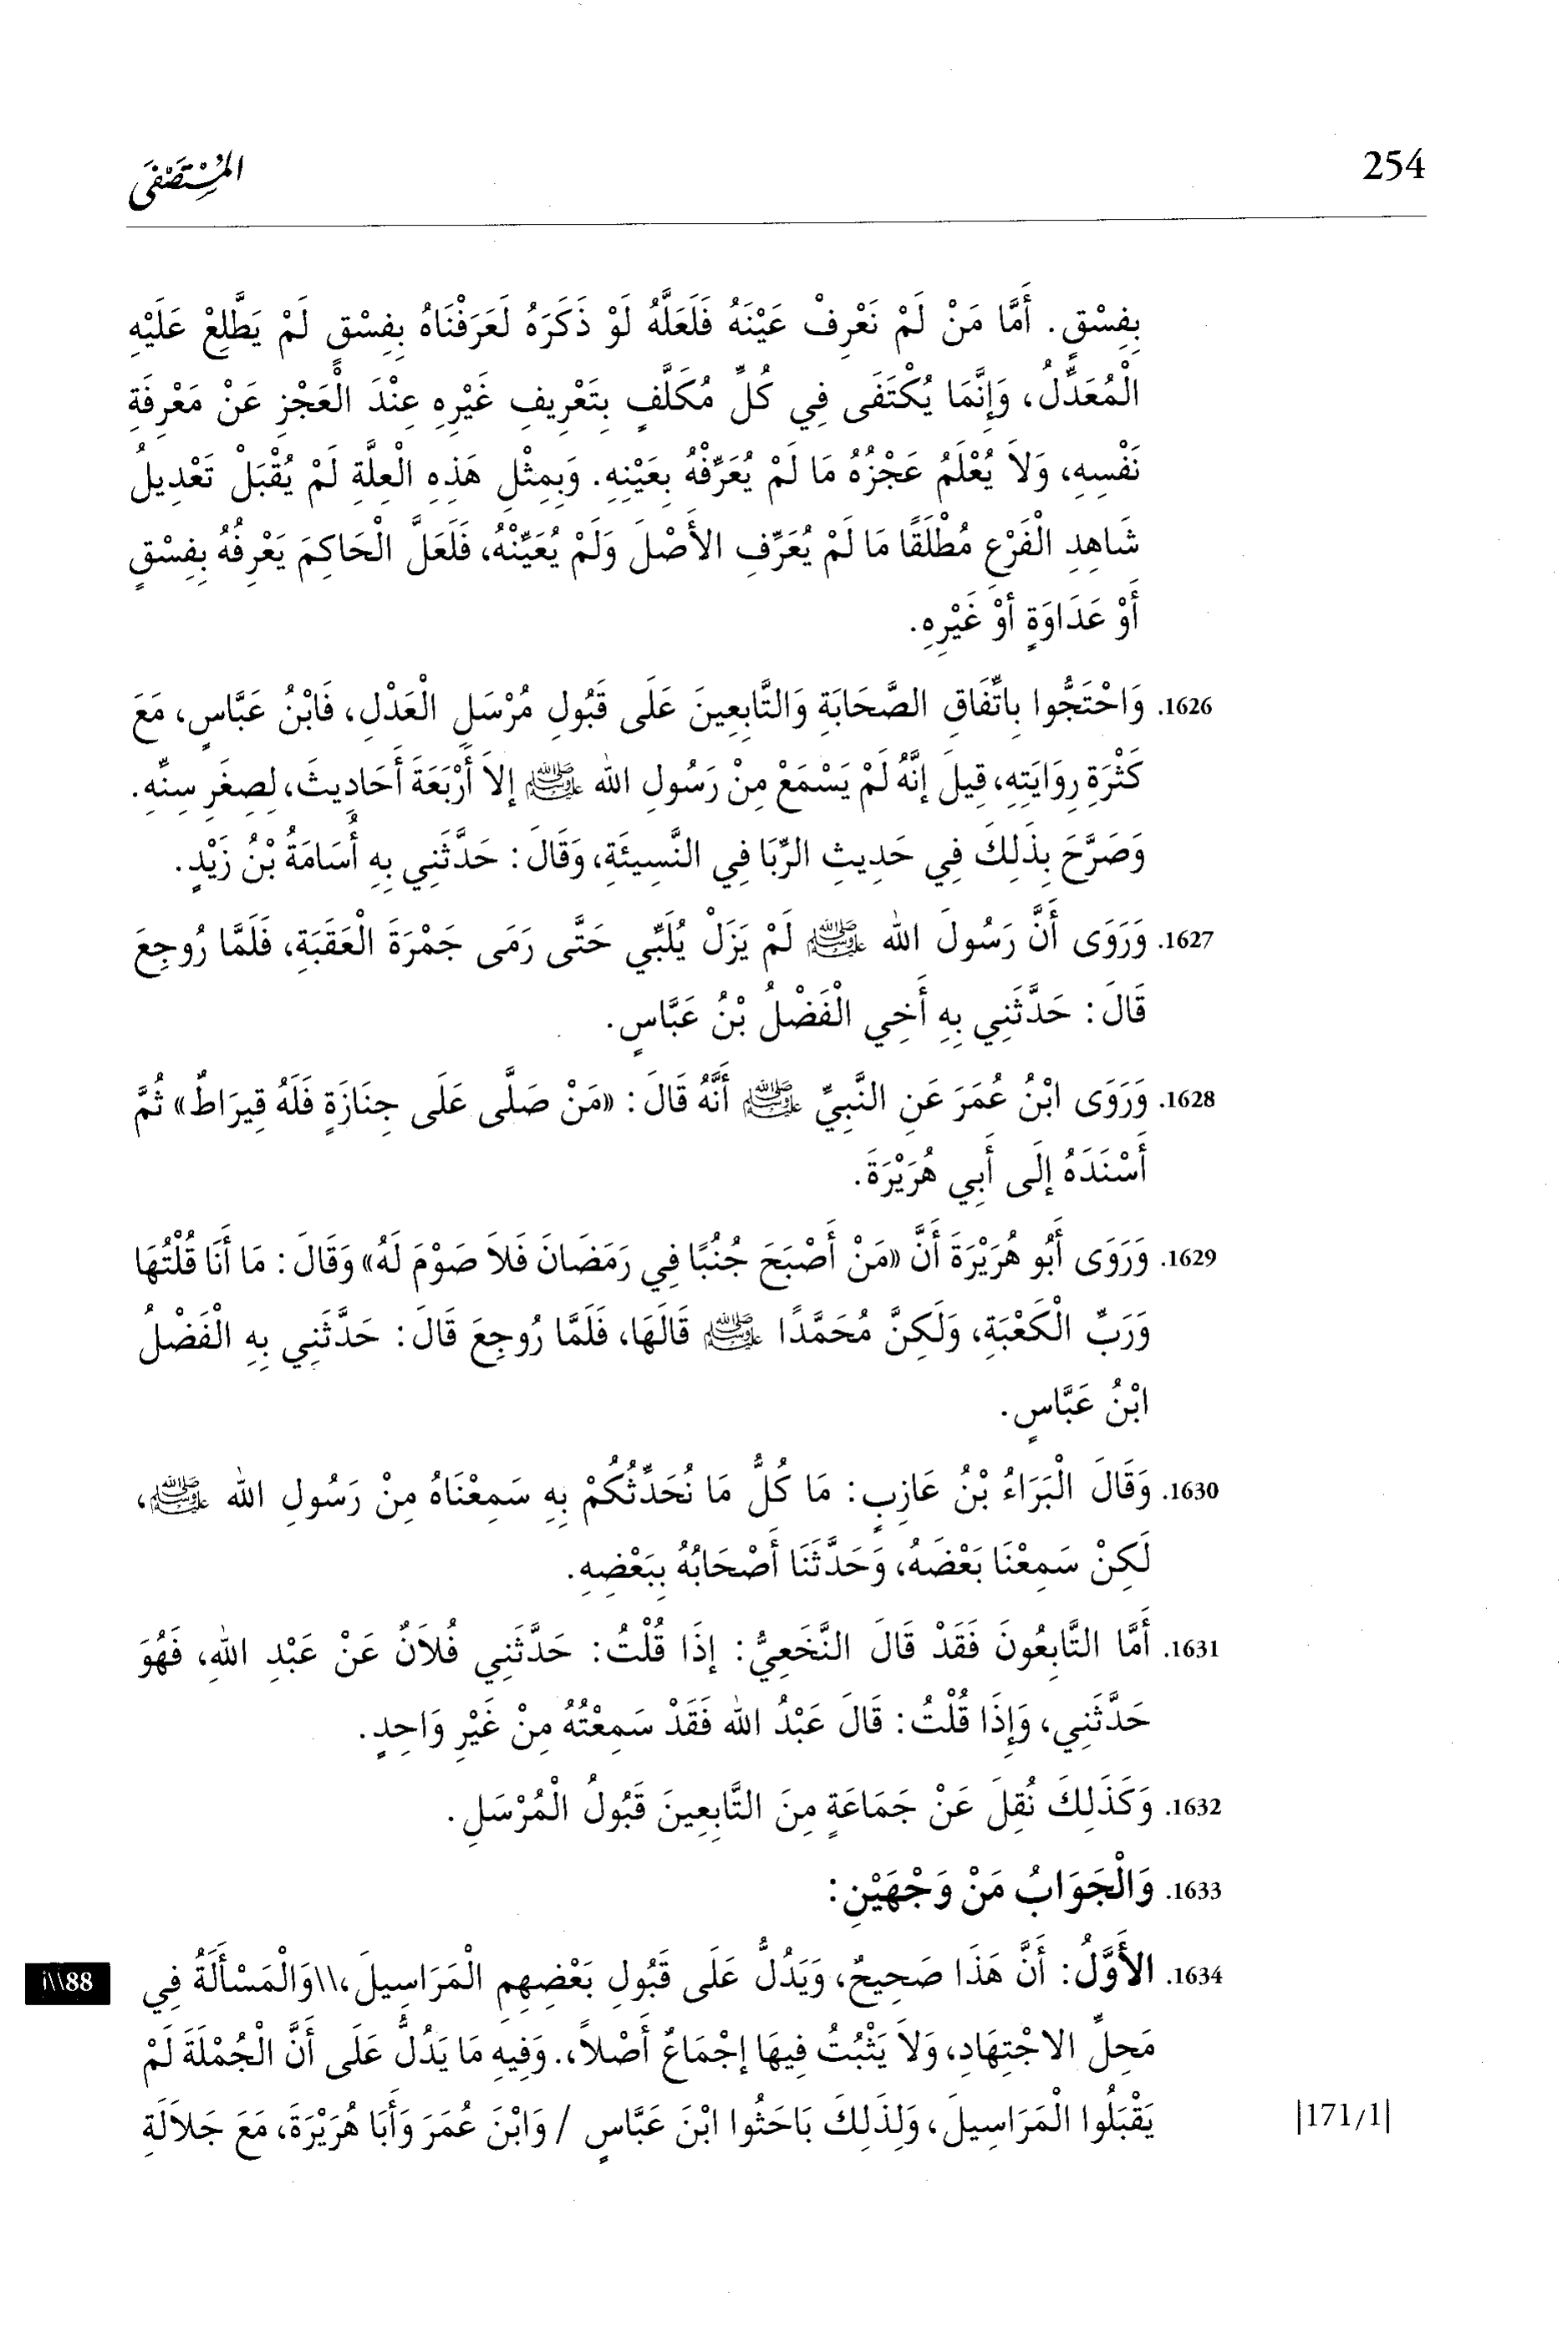 254
المُسْتَصْفَى
بِفِسْقٍ. أَمَّا مَنْ لَمْ نَعْرِفْ عَيْنَهُ فَلَعَلَّهُ لَوْ ذَكَرَهُ لَعَرَفْنَاهُ بِفِسْقٍ لَمْ يَطَّلِعْ عَلَيْهِ
الْمُعَدِّلُ، وَإِنَّمَا يُكْتَفَى فِي كُلِّ مُكَلَّفٍ بِتَعْرِيفِ غَيْرِهِ عِنْدَ الْعَجْزِ عَنْ مَعْرِفَةِ
نَفْسِهِ، وَلاَ يُعْلَمُ عَجْزُهُ مَا لَمْ يُعَرِّفْهُ بِعَيْنِهِ. وَبِمِثْلِ هَذِهِ الْعِلَّةِ لَمْ يُقْبَلْ تَعْدِيلُ
شَاهِدِ الْفَرْعِ مُطْلَقًا مَا لَمْ يُعَرِّفِ الأَصْلَ وَلَمْ يُعَيِّنْهُ، فَلَعَلَّ الْحَاكِمَ يَعْرِفُهُ بِفِسْقٍ
أَوْ عَدَاوَةٍ أَوْ غَيْرِهِ.
1626. وَاحْتَجُّوا بِاتِّفَاقِ الصَّحَابَةِ وَالتَّابِعِينَ عَلَى قَبُولِ مُرْسَلِ الْعَدْلِ، فَابْنُ عَبَّاسٍ، مَعَ
كَثْرَةِ رِوَايَتِهِ، قِيلَ إِنَّهُ لَمْ يَسْمَعْ مِنْ رَسُولِ الله ﷺ إِلاَ أَرْبَعَةَ أَحَادِيثَ، لِصِغَرِ سِنِّهِ.
وَصَرَّحَ بِذَلِكَ فِي حَدِيثِ الرِّبَا فِي النَّسِيئَةِ، وَقَالَ: حَدَّثَنِي بِهِ أُسَامَةُ بْنُ زَيْدٍ.
1627. وَرَوَى أَنَّ رَسُولَ الله ﷺ لَمْ يَزَلْ يُلَبِّي حَتَّى رَمَى جَمْرَةَ الْعَقَبَةِ، فَلَمَّا رُوجِعَ
قَالَ: حَدَّثَنِي بِهِ أَخِي الْفَضْلُ بْنُ عَبَّاسٍ.
1628. وَرَوَى ابْنُ عُمَرَ عَنِ النَّبِيِّ ﷺ أَنَّهُ قَالَ: «مَنْ صَلَّى عَلَى جِنَازَةٍ فَلَهُ قِيرَاطٌ» ثُمَّ
أَسْنَدَهُ إِلَى أَبِي هُرَيْرَةَ.
1629. وَرَوَى أَبُو هُرَيْرَةَ أَنَّ «مَنْ أَصْبَحَ جُنُبًا فِي رَمَضَانَ فَلاَ صَوْمَ لَهُ» وَقَالَ: مَا أَنَا قُلْتُهَا
وَرَبِّ الْكَعْبَةِ، وَلَكِنَّ مُحَمَّدًا ﷺ قَالَهَا، فَلَمَّا رُوجِعَ قَالَ: حَدَّثَنِي بِهِ الْفَضْلُ
ابْنُ عَبَّاسٍ.
1630. وَقَالَ الْبَرَاءُ بْنُ عَازِبٍ: مَا كُلُّ مَا نُحَدِّثُكُمْ بِهِ سَمِعْنَاهُ مِنْ رَسُولِ الله ﷺ،
لَكِنْ سَمِعْنَا بَعْضَهُ، وَحَدَّثَنَا أَصْحَابُهُ بِبَعْضِهِ.
1631. أَمَّا التَّابِعُونَ فَقَدْ قَالَ النَّخَعِيُّ: إِذَا قُلْتُ: حَدَّثَنِي فُلاَنٌ عَنْ عَبْدِ اللهِ، فَهُوَ
حَدَّثَنِي، وَإِذَا قُلْتُ: قَالَ عَبْدُ الله فَقَدْ سَمِعْتُهُ مِنْ غَيْرِ وَاحِدٍ.
1632. وَكَذَلِكَ نُقِلَ عَنْ جَمَاعَةٍ مِنَ التَّابِعِينَ قَبُولُ الْمُرْسَلِ.
1633. وَالْجَوَابُ مَنْ وَجْهَيْنِ:
1634. الأَوَّلُ: أَنَّ هَذَا صَحِيحٌ، وَيَدُلُّ عَلَى قَبُولِ بَعْضِهِمِ الْمَرَاسِيلَ،\\وَالْمَسْأَلَةُ فِي
88\\أ
مَحِلِّ الاجْتِهَادِ، وَلاَ يَثْبُتُ فِيهَا إِجْمَاعٌ أَصْلاً،. وَفِيهِ مَا يَدُلُّ عَلَى أَنَّ الْجُمْلَةَ لَمْ
يَقْبَلُوا الْمَرَاسِيلَ، وَلِذَلِكَ بَاحَثُوا ابْنَ عَبَّاسٍ / وَابْنَ عُمَرَ وَأَبَا هُرَيْرَةَ، مَعَ جَلاَلَةِ
|171/1|